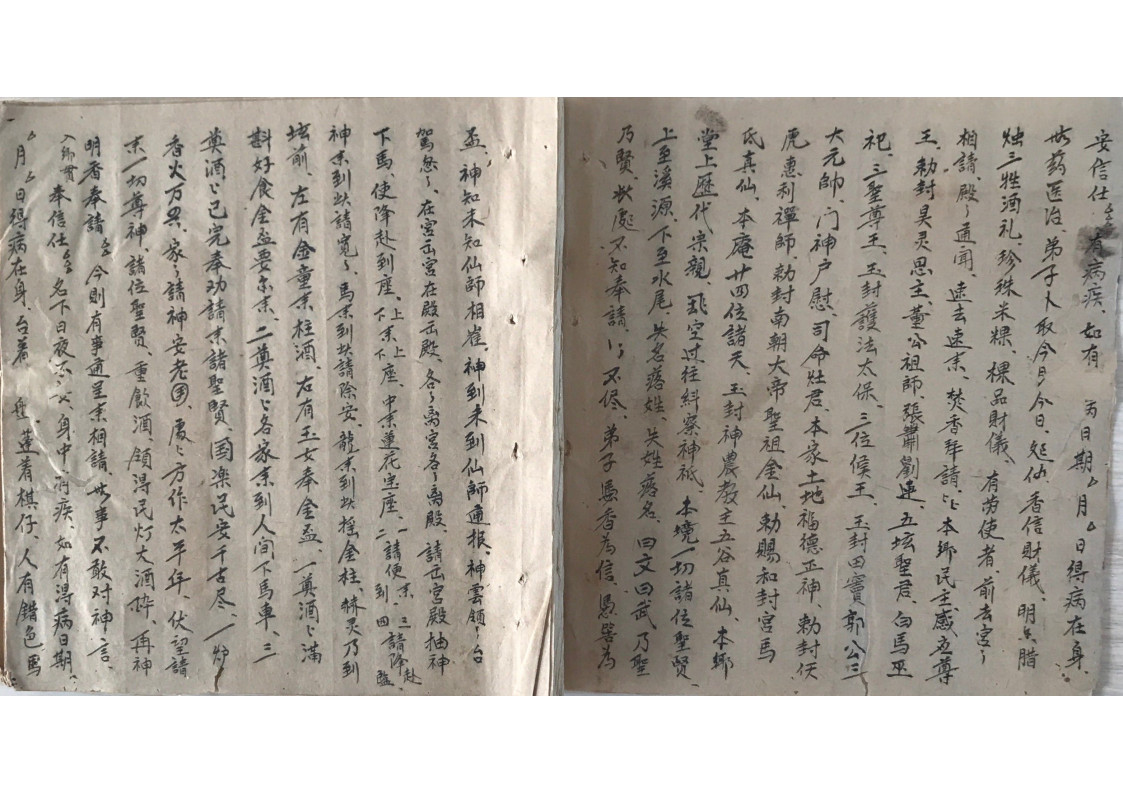 安信仕 有病疾、如有 丙日期ム月ム日得病在身
世药医治、弟子卜取今月今日、処办香信財儀、明点腊
烛三牲酒礼、珍珠米粿、粿品財儀、有劳使者、前去宮〻
相請、殿〻通聞、速去速来、焚香拜請〻、本鄉民主感应尊
王、勅封昊灵思主、董公祖師、張蕭劉連、五坛聖君、白馬巫
祀、三聖尊王、玉封護法太保、三位侯王、玉封田竇郭公三
大元帥、门神户慰、司命灶君、本家土地福德正神、勅封伏
虎惠利禪師、勅封南朝大帝聖祖金仙、勅賜和封宮馬
氐真仙、本庵廿四位諸天、玉封神農教主五谷真仙、本鄉
堂上歷代宗親、空过往糾察神祇、本境一切諸位聖賢
上至溪源、下至水尾、失名落姓、失姓落名、曰文曰武乃聖
乃賢、状處不知奉請〻不尽、弟子馮香為信、馮為
盃、神知未知仙師相崔、神到未到仙師通报、神雲領〻台
駕忽〻、在宮岳宮在殿岳殿、各〻离宮各〻离殿、請岳宮殿抽神
下馬、使降赴到座、上来上座、下来下座、中来蓮花宝座、一請便来、二請便到、三請降赴、四臨
神来到状諸寬〻、馬来到状請除安、龍来到状摇金柱、灵乃到
坛前、左有金童来柱酒、右有玉女奉金盃、一奠酒〻满
斟好食金盃要尔来、二奠酒〻各家来到人间下馬車、三
奠酒〻已完奉劝請来諸聖賢、国楽民安千古尽、一炉
香火万_、家〻請神安老囝、處〻方作太平年、伏望諸
来一切尊神、諸位聖賢、重飲酒、領得民灯大酒_、再神
明香奉請 今則有事通呈来相請、世事不敢对神〻言、
入鄉貫 奉信仕 名下日夜不 身中疾、如有得病日期
ム月ム日得病在身、台着 蓮着棋仔、人有錯